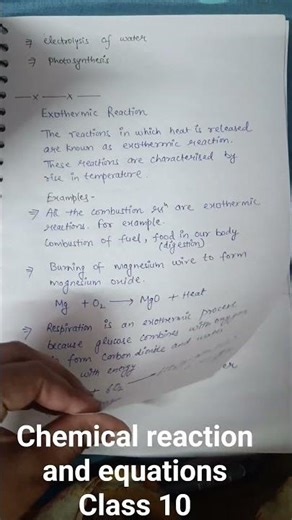 ⇒ electrolysis of water
⇒ photosynthesis
—x———x—
Exothermic Reaction
The reactions in which heat is released
are known as exothermic reaction.
These reactions are characterised by
rise in temperature.
Examples-
⇒ All the combustion rxⁿ are exothermic
reactions. For example.
Combustion of fuel, food in our body
(digestion)
⇒ Burning of magnesium wire to form
magnesium oxide.
Mg + O₂ ⟶ MgO + Heat
⇒ Respiration is an exothermic process
because glucose combines with oxygen
to form carbon dioxide and water
with energy
+ 6O₂
er
Chemical reaction
and equations
Class 10